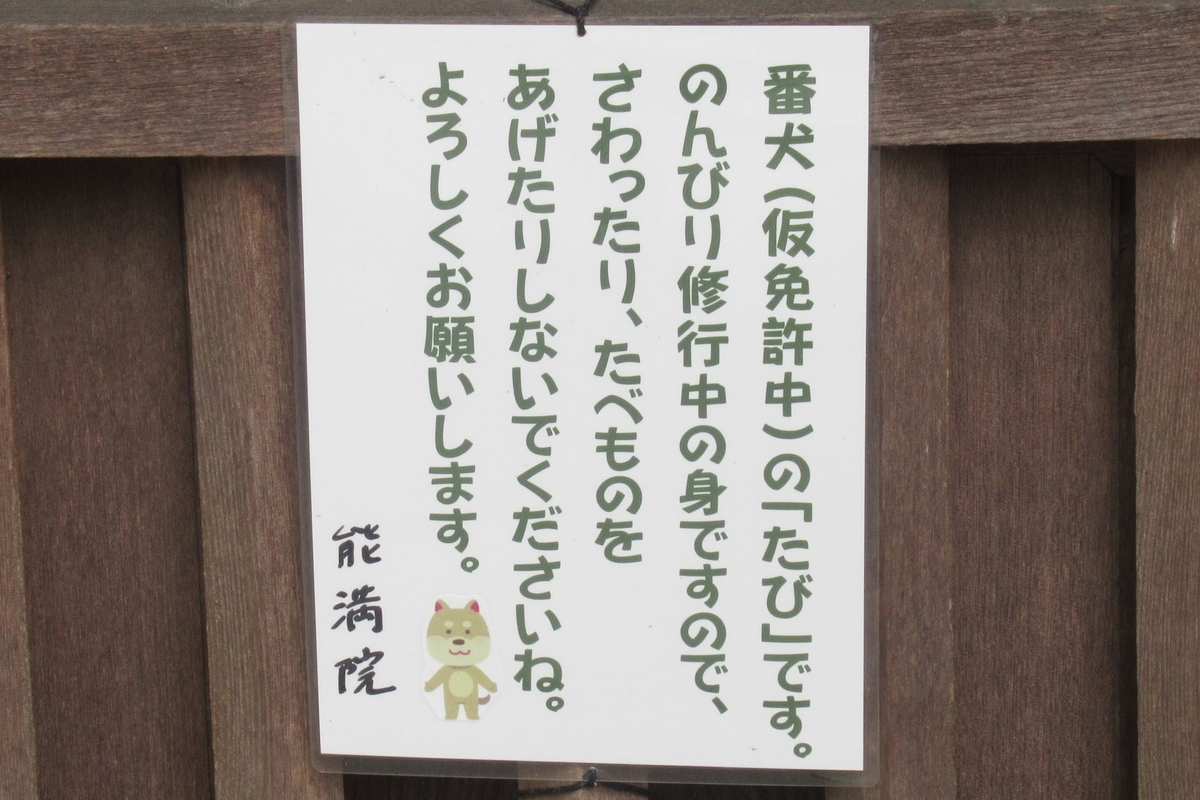 番犬（仮免許中）の「たび」です。
のんびり修行中の身ですので、
さわったり、たべものを
あげたりしないでくださいね。
よろしくお願いします。
能満院